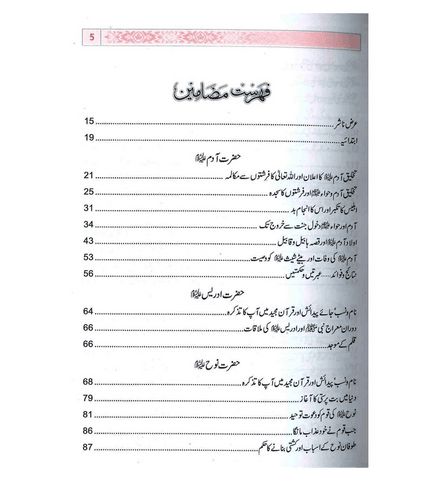 5
فہرست مضامین
عرض ناشر 15
ابتدائیہ 19
حضرت آدم علیہ السلام
تخلیق آدم علیہ السلام کا اعلان اور اللہ تعالیٰ کا فرشتوں سے مکالمہ 21
تخلیق آدم و حواء علیہما السلام اور فرشتوں کا سجدہ 25
ابلیس کا تکبر اور اس کا انجام بد 31
آدم اور حواء علیہما السلام دخول جنت سے خروج تک 34
اولاد آدم علیہ السلام اور قصہ ہابیل و قابیل 43
آدم علیہ السلام کی وفات اور بیٹے شیث علیہ السلام کو وصیت 53
نتائج و فوائد ... عبرتیں و حکمتیں 56
حضرت ادریس علیہ السلام
نام و نسب، جائے پیدائش اور قرآن مجید میں آپ کا تذکرہ 64
دوران معراج نبی ﷺ اور ادریس علیہ السلام کی ملاقات 66
قلم کے موجد 66
حضرت نوح علیہ السلام
نام و نسب، پیدائش اور قرآن مجید میں آپ کا تذکرہ 68
دنیا میں بت پرستی کا آغاز 79
نوح علیہ السلام کی قوم کو دعوت توحید 81
جب قوم نے خود عذاب مانگا 86
طوفان نوح کے اسباب اور کشتی بنانے کا حکم 87